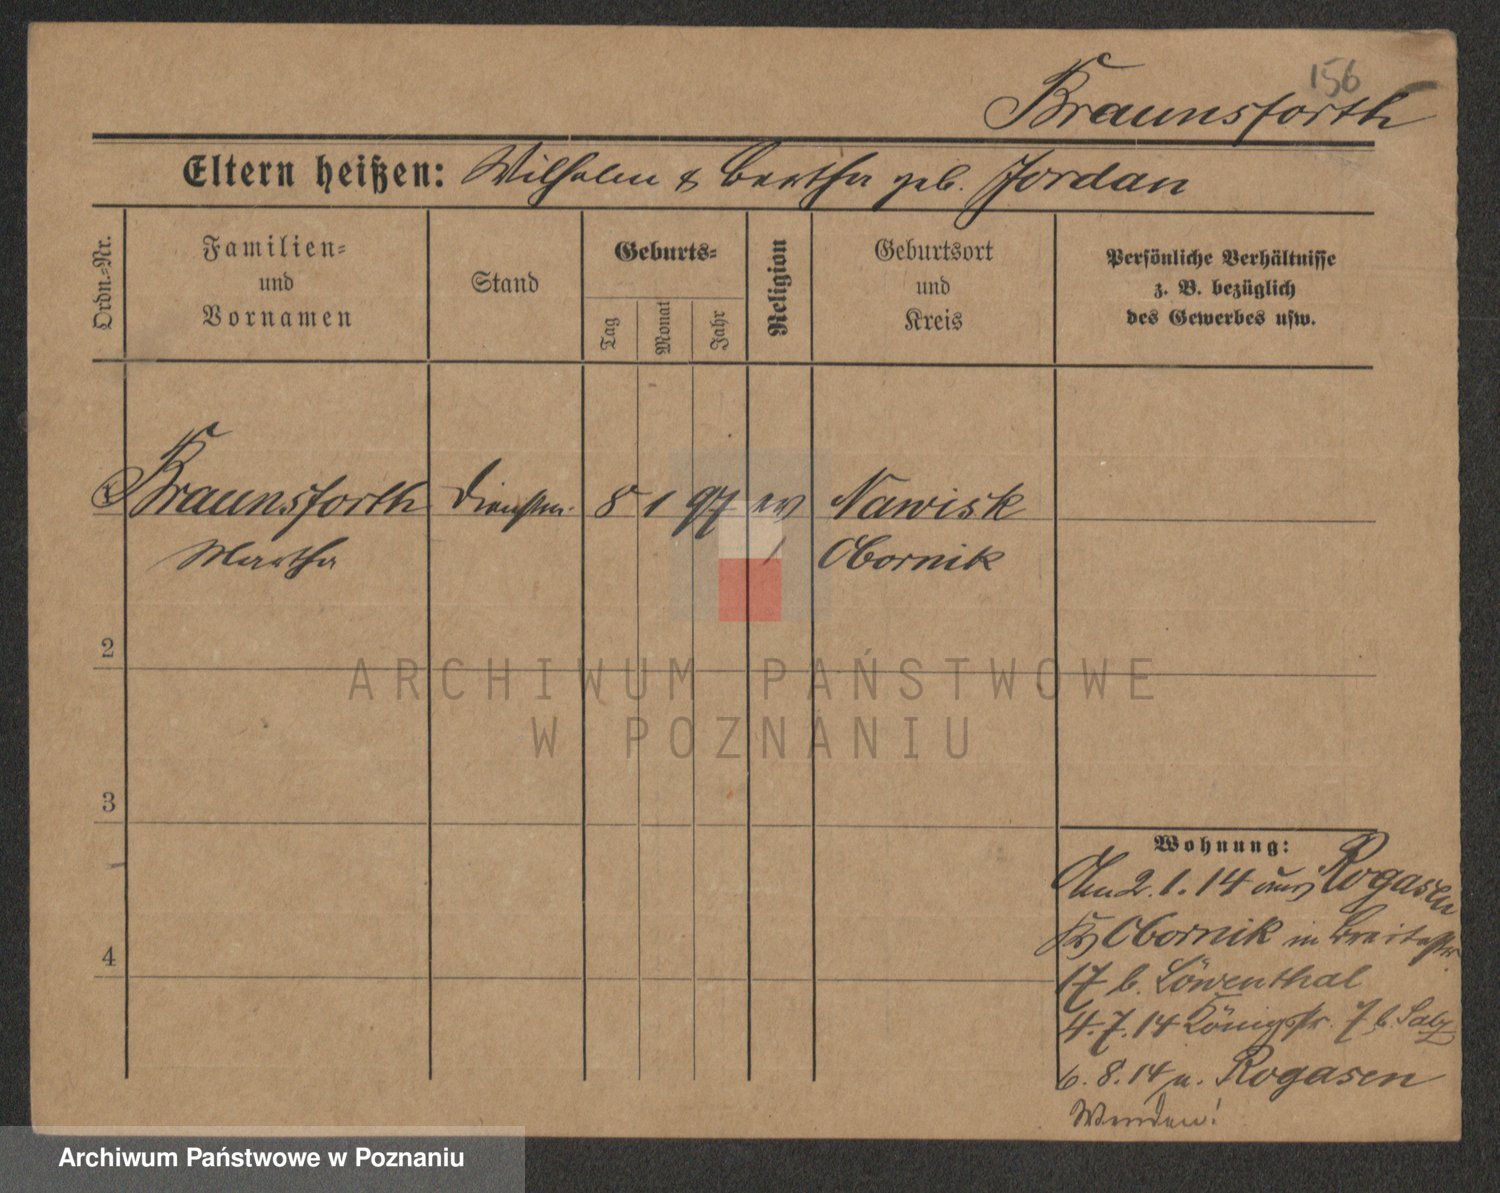 156
Braunsforth
Eltern heißen: Wilhelm & Bertha geb. Jordan
Ordn.-Nr.
Familien-
und
Vornamen
Stand
Geburts-
Tag
Monat
Jahr
Religion
Geburtsort
und
Kreis
Persönliche Verhältnisse
z. B. bezüglich
des Gewerbes usw.
Braunsforth 8 1 97 ev Nawisk
Martha Obornik
2
3
4
ARCHIWUM PAŃSTWOWE
W POZNANIU
Wohnung:
Am 2.1.14 aus Rogasen
Kr Obornik in Breitestr
17 b. Löwenthal
4.7.14 Königstr. 7 b. Salz
6.8.14 n. Rogasen
Wenden!
Archiwum Państwowe w Poznaniu